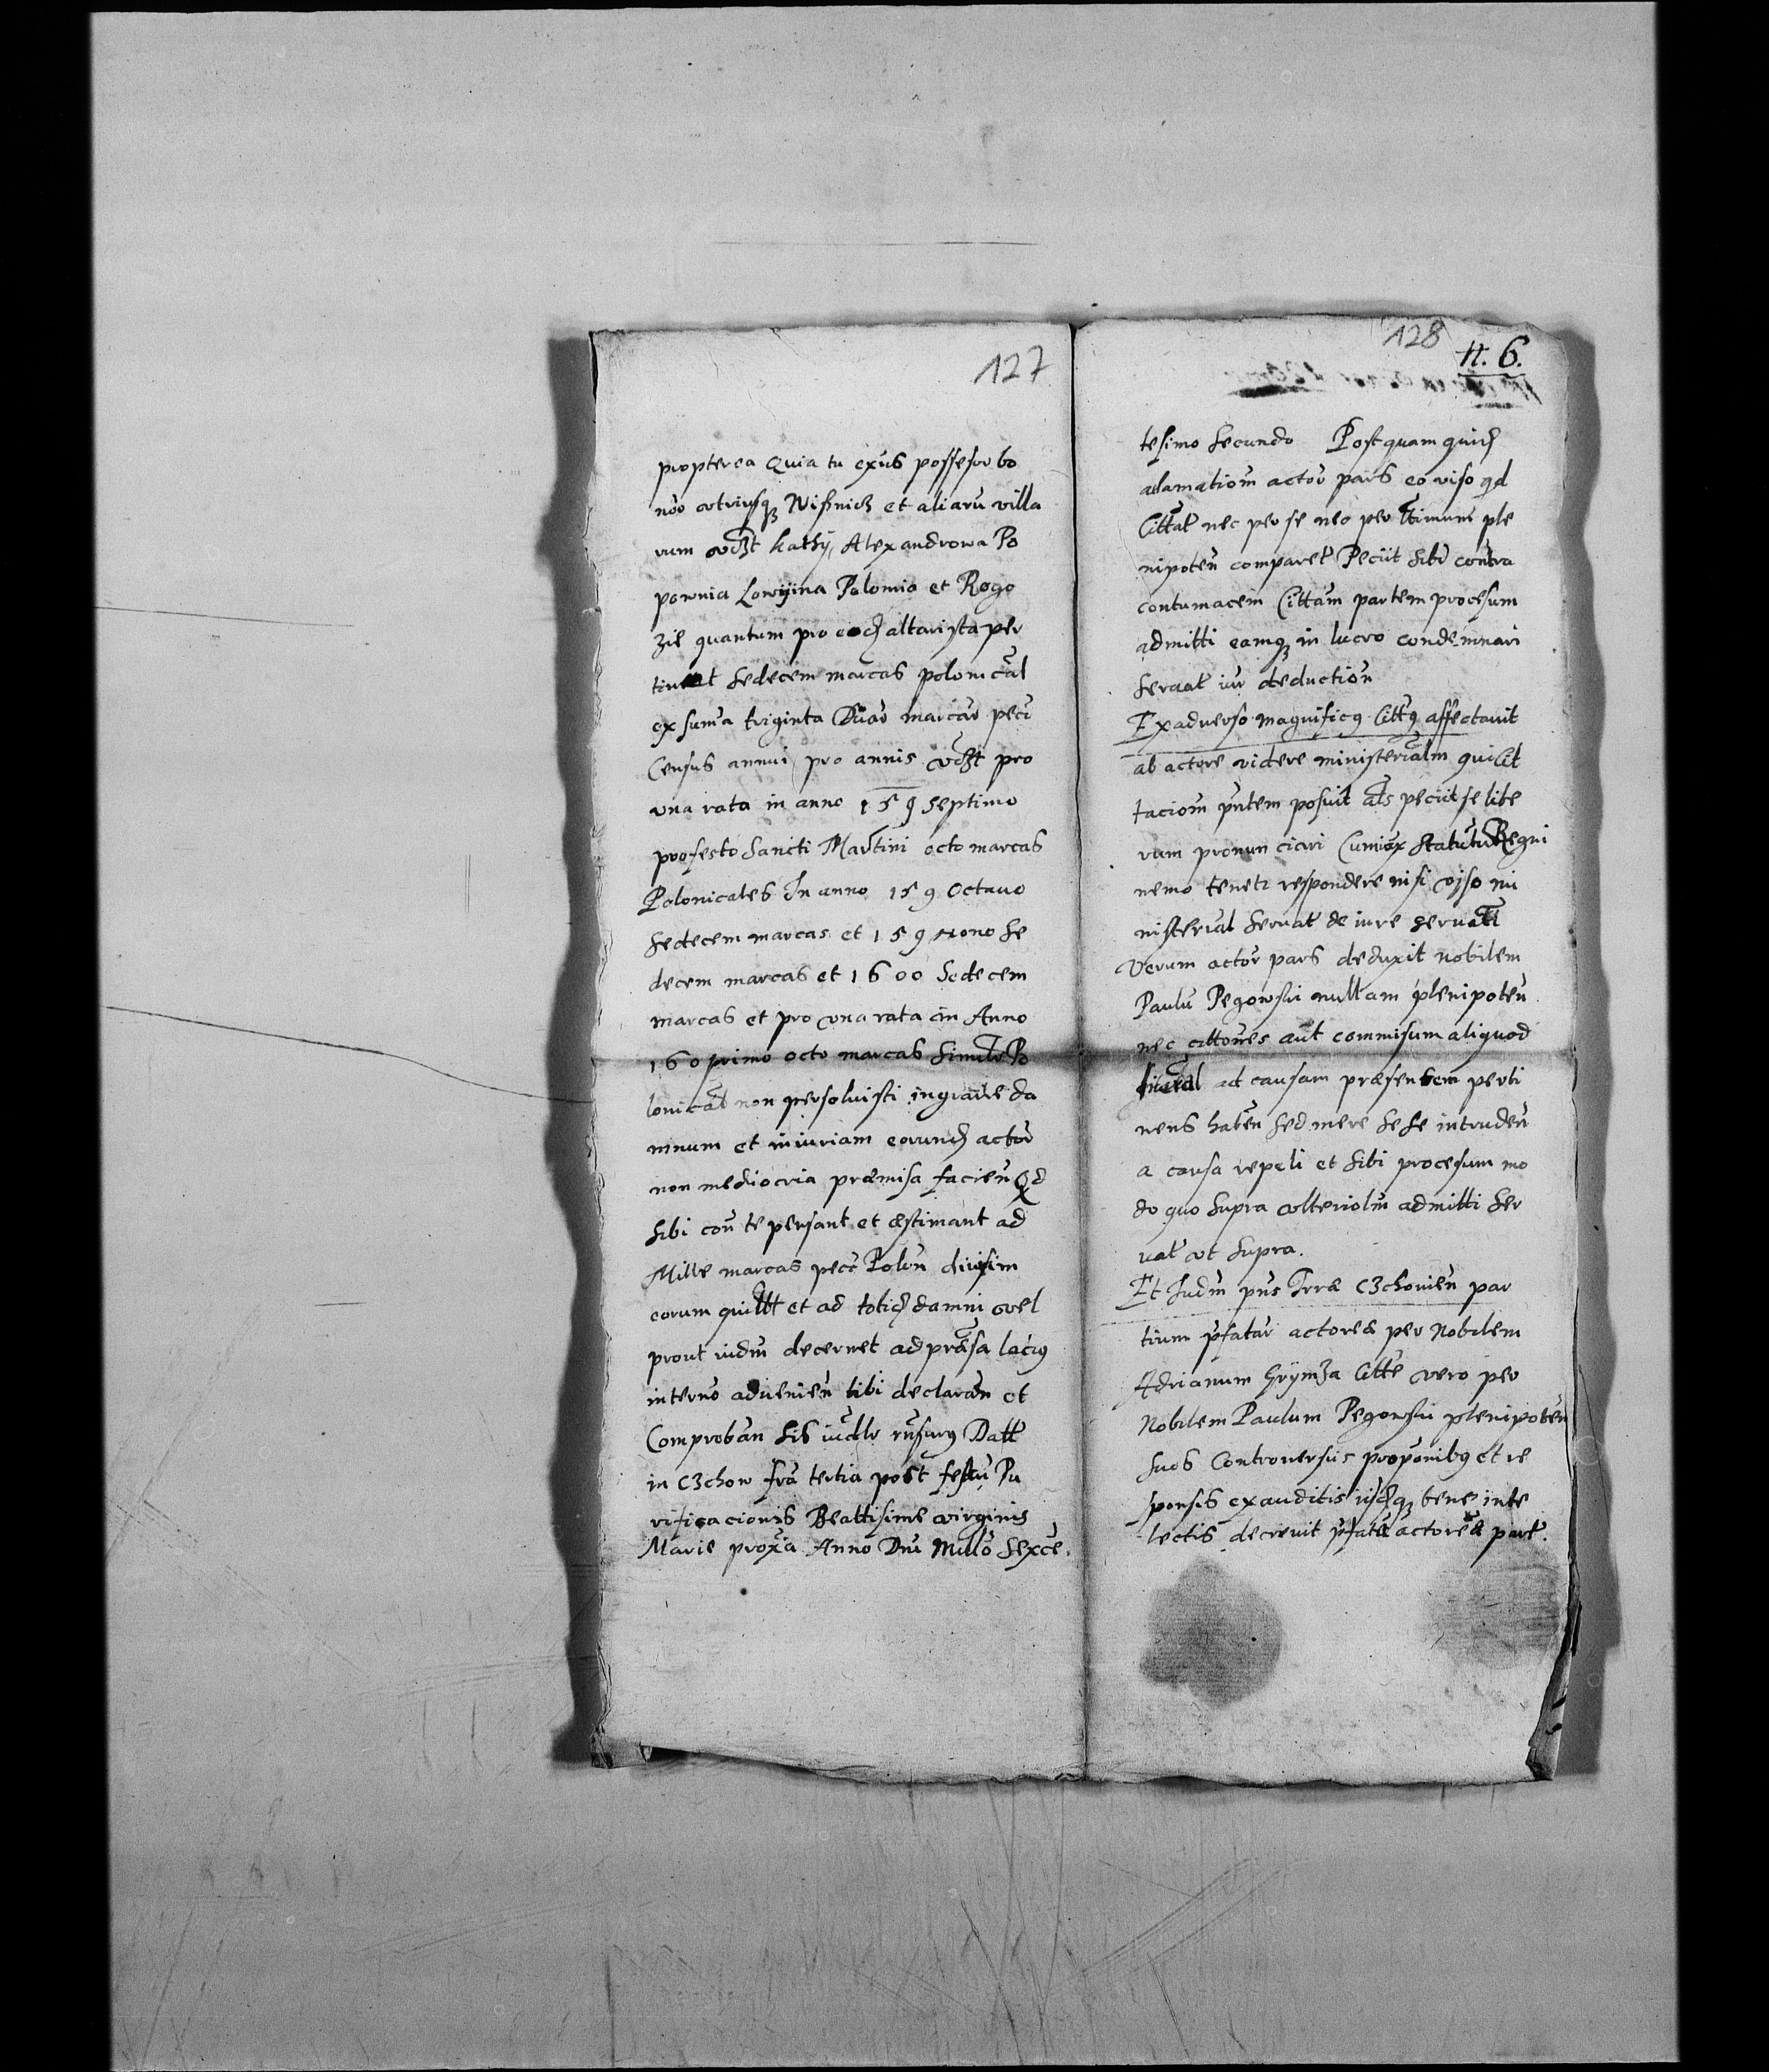 127
propterea quia tu exus possessor bo
nor utriusq3 Wisnicz et aliaru villa
rum vdzt Kathÿ, Alexandrowa Po
pownia Lowÿina Polomia et Rogo
zie quantum pro eod altarista per
tinent sedecem marcas polonical
ex suma triginta Duar marcar pecu
Census annui pro annis vdzt pro
una rata in anno 159 septimo
pro festo Sancti Martini octo marcas
Polonicales In anno 159 Octauo
sedecem marcas et 159 Nono se
decem marcas et 1600 Sedecem
marcas et pro una rata in Anno
160 primo octo marcas similr Po
lonical non persoluisti in graue da
mnum et iniuriam eorund actor
non mediocria præmisa facien Qd
sibi con te pensant et æstimant ad
Mille marcas pecc Polon diuisim
eorum quilbt et ad totid damni vel
prout iudm decernet ad præmisa lacius
intermo aduenien tibi declaran et
Comproban sis iudlr rnsurus Datt
in Czchow fra tertia post festu Pu
rificacionis Beattisime virginis
Marie proxa Anno Dni Millo Sexce.
128
N. 6.
tesimo secundo Postquam quid
adamationm actor pars eo viso qd
Cittat nec per se nec per ltimum ple
nipoten comparet Peciit sibi contra
contumacem Cittam partem procesum
admitti eamq3 in lucro condemnari
seruat iur deduction
Ex aduerso magnificus Cittus affectauit
ab actore videre ministerialm qui Cit
tacionm pntem posuit als peciit se libe
rum pronunciari Cum ex Statutu Regni
nemo tenetr respondere nisi viso mi
nisterial seruat de iure seruatt
Verum actor pars deduxit nobilem
Paulu Pegowski nullam plenipoten
nec cittones aut commisum aliquod
ad causam præsentem perti
nens haben sed mere se se intruden
a causa repeli et sibi procesum mo
do quo supra vlteriolm admitti ser
uat vt supra.
Et Judm pns Trræ Czchouien par
tium pfatar actoreæ per Nobilem
Adrianum Grÿmza Citte vero per
Nobilem Paulum Pegowski plenipoten
suos Controuersiis proponibus et re
sponsis exauditis iisdq3 bene inte
lectis decreuit pfatæ actoreæ part.